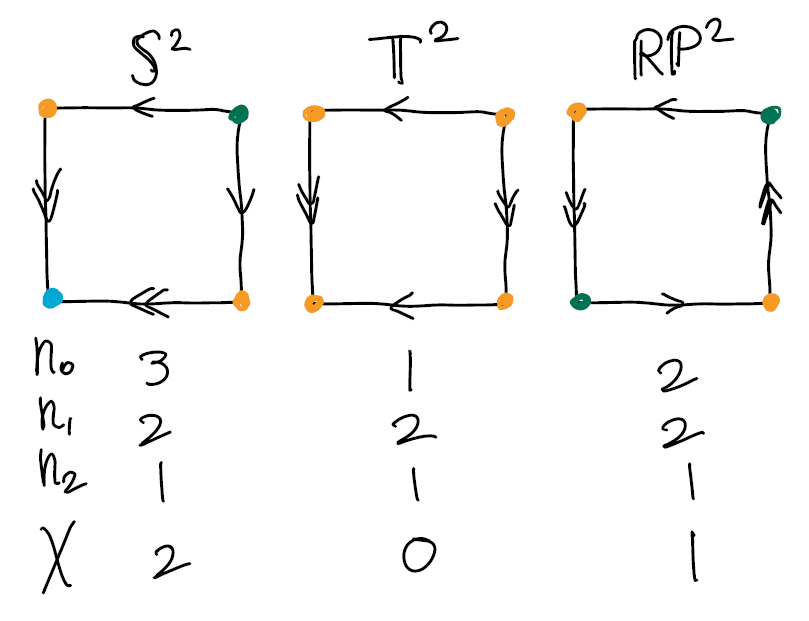 S² T² RP²
n₀ 3 1 2
n₁ 2 2 2
n₂ 1 1 1
χ 2 0 1